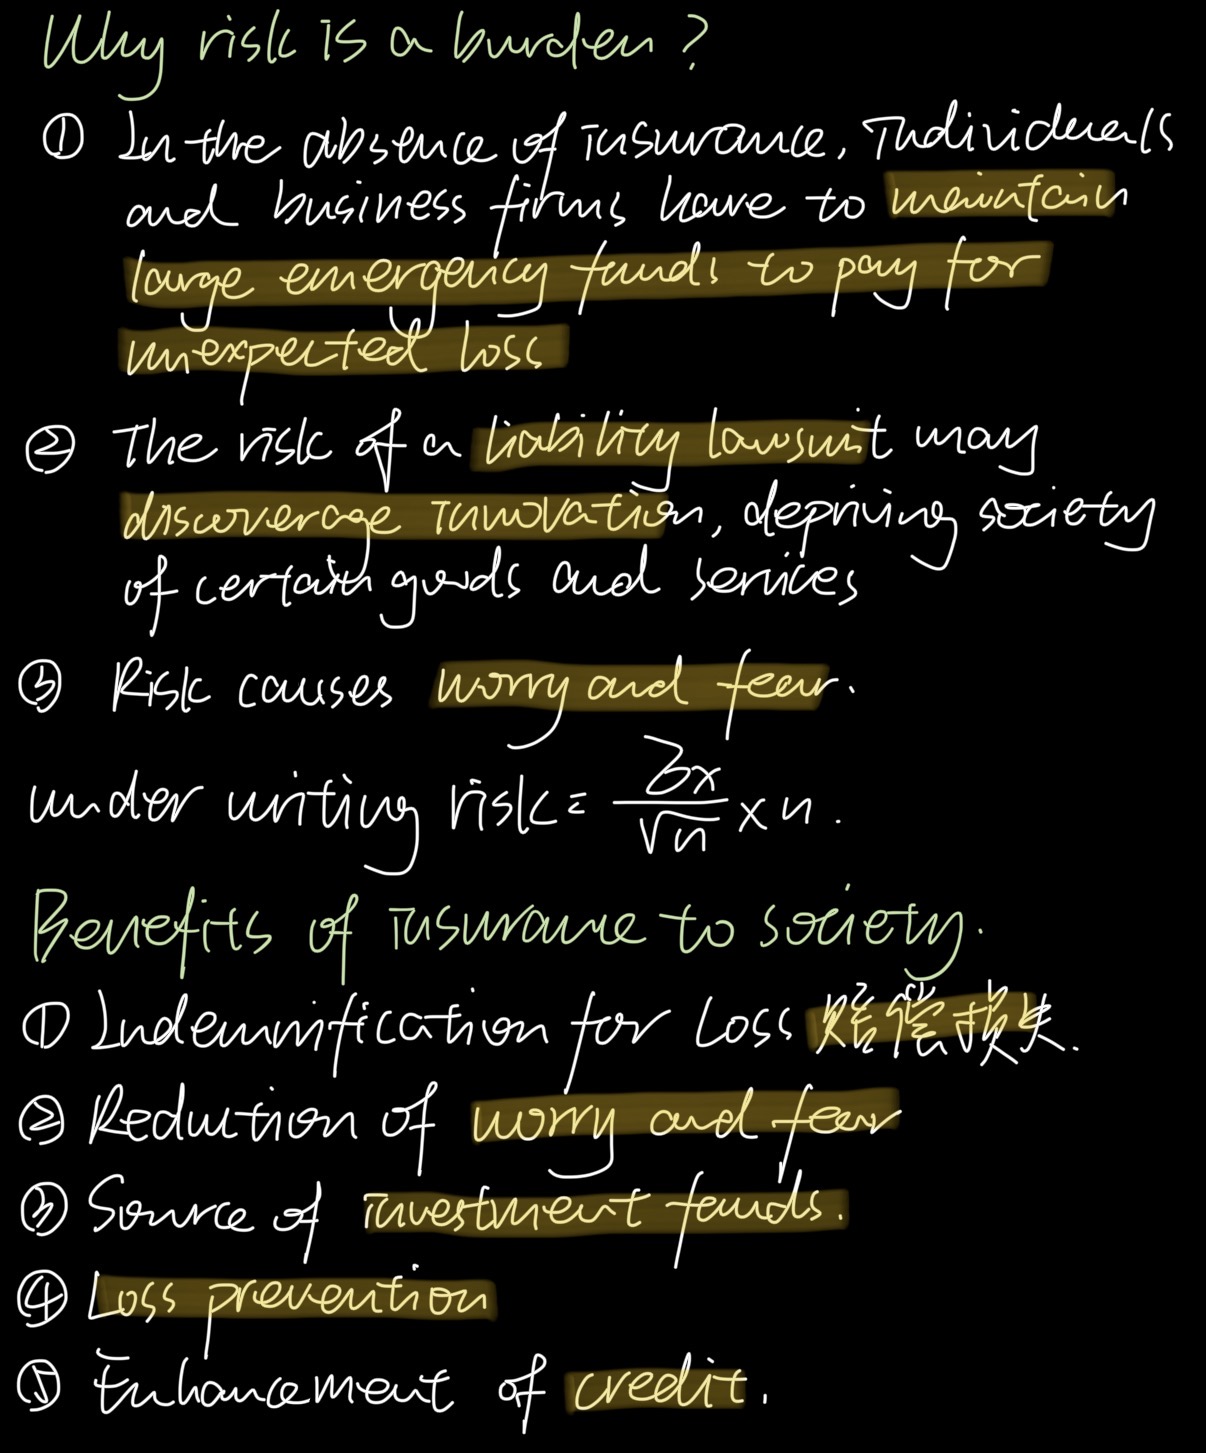 Why risk is a burden?
① In the absence of insurance, Individuals
and business firms have to maintain
large emergency funds to pay for
unexpected loss
② The risk of a liability lawsuit may
discoverage innovation, depriving society
of certain goods and services
③ Risk causes worry and fear.
under writing risk = σx/√n × n.
Benefits of insurance to society.
① Indemnification for Loss 赔偿损失.
② Reduction of worry and fear
③ Source of investment funds.
④ Loss prevention
⑤ Enhancement of credit.